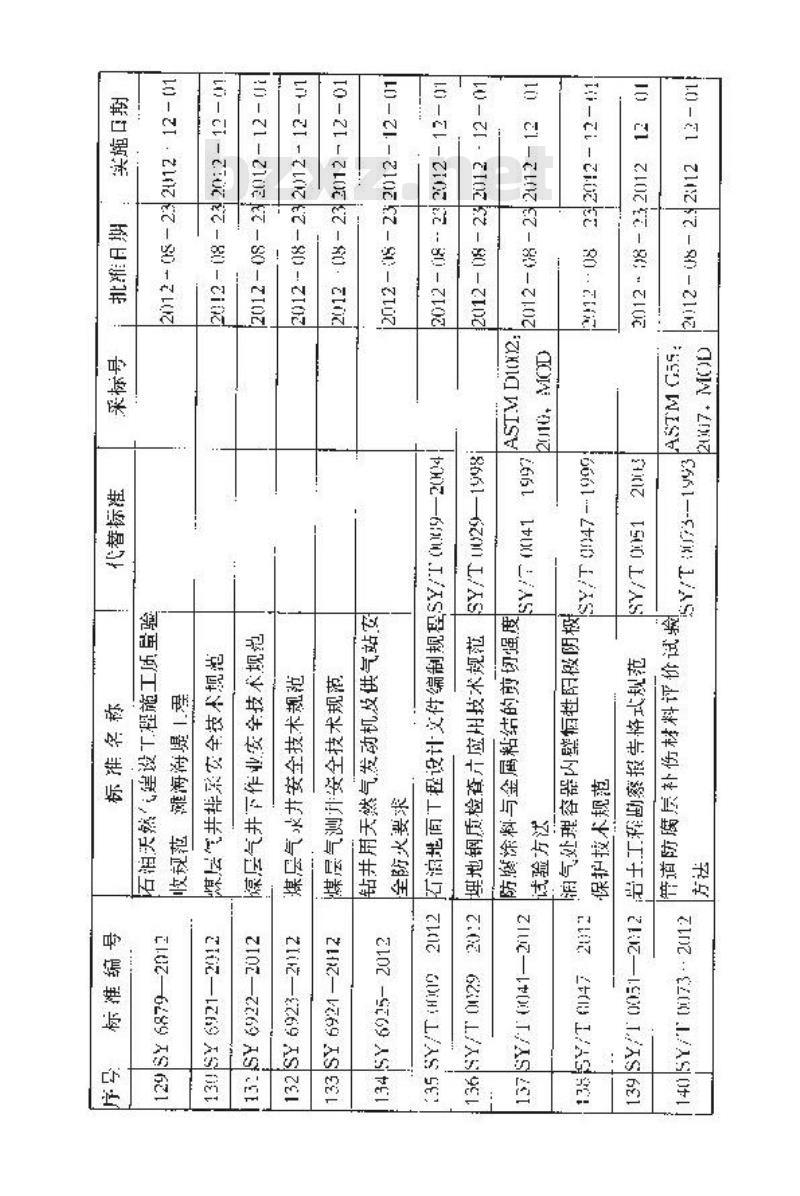 序号 标准编号 标准名称 代替标准 采标号 批准日期 实施日期
129 SY 6879—2012 石油天然气建设工程施工质量验 2012-08-23 2012-12-01
收规范 滩海海堤工程
130 SY 6921—2012 煤层气井钻采安全技术规范 2012-08-23 2012-12-01
131 SY 6922—2012 煤层气井下作业安全技术规范 2012-08-23 2012-12-01
132 SY 6923—2012 煤层气录井安全技术规范 2012-08-23 2012-12-01
133 SY 6924—2012 煤层气测井安全技术规范 2012-08-23 2012-12-01
134 SY 6925—2012 钻井用天然气发动机及供气站安 2012-08-23 2012-12-01
全防火要求
135 SY/T 0009—2012 石油地面工程设计文件编制规程 SY/T 0009—2004 2012-08-23 2012-12-01
136 SY/T 0029—2012 埋地钢质检查片应用技术规范 SY/T 0029—1998 2012-08-23 2012-12-01
137 SY/T 0041—2012 防腐涂料与金属粘结的剪切强度 SY/T 0041—1997 ASTM D1002: 2012-08-23 2012-12-01
试验方法 2010,MOD
138 SY/T 0047—2012 油气处理容器内壁牺牲阳极阴极 SY/T 0047—1999 2012-08-23 2012-12-01
保护技术规范
139 SY/T 0051—2012 岩土工程勘察报告格式规范 SY/T 0051—2003 2012-08-23 2012-12-01
140 SY/T 0073—2012 管道防腐层补伤材料评价试验 SY/T 0073—1993 ASTM G55: 2012-08-23 2012-12-01
方法 2007,MOD
bzxz.net